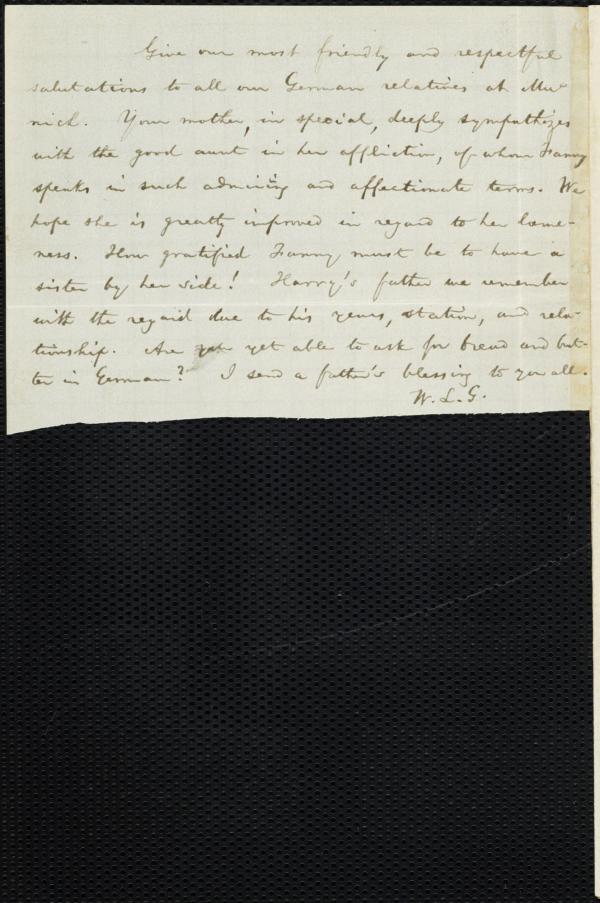 Give our most friendly and respectful
salutations to all our German relatives at Mu-
nich. Your mother, in special, deeply sympathizes
with the good aunt in her affliction, of whom Fanny
speaks in such admiring and affectionate terms. We
hope she is greatly improved in regard to her lame-
ness. How gratified Fanny must be to have a
sister by her side! Harry's father we remember
with the regard due to his years, station, and rela-
tionship. Are you yet able to ask for bread and but-
ter in German? I send a father's blessing to you all.
W. L. G.